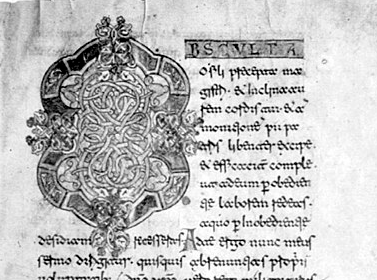 BSCULTA
O fili precepta ma
gistri & inclina au
rem cordis tui & ad
monitione pii pa
tris libenter excipe
& efficaciter comple
ut ad eum p obedien
tie laborem redeas
a quo p inobedientie
desidiam recesseras Ad te ergo nunc meus
sermo dirigitur. quisquis abrenuntians propriis